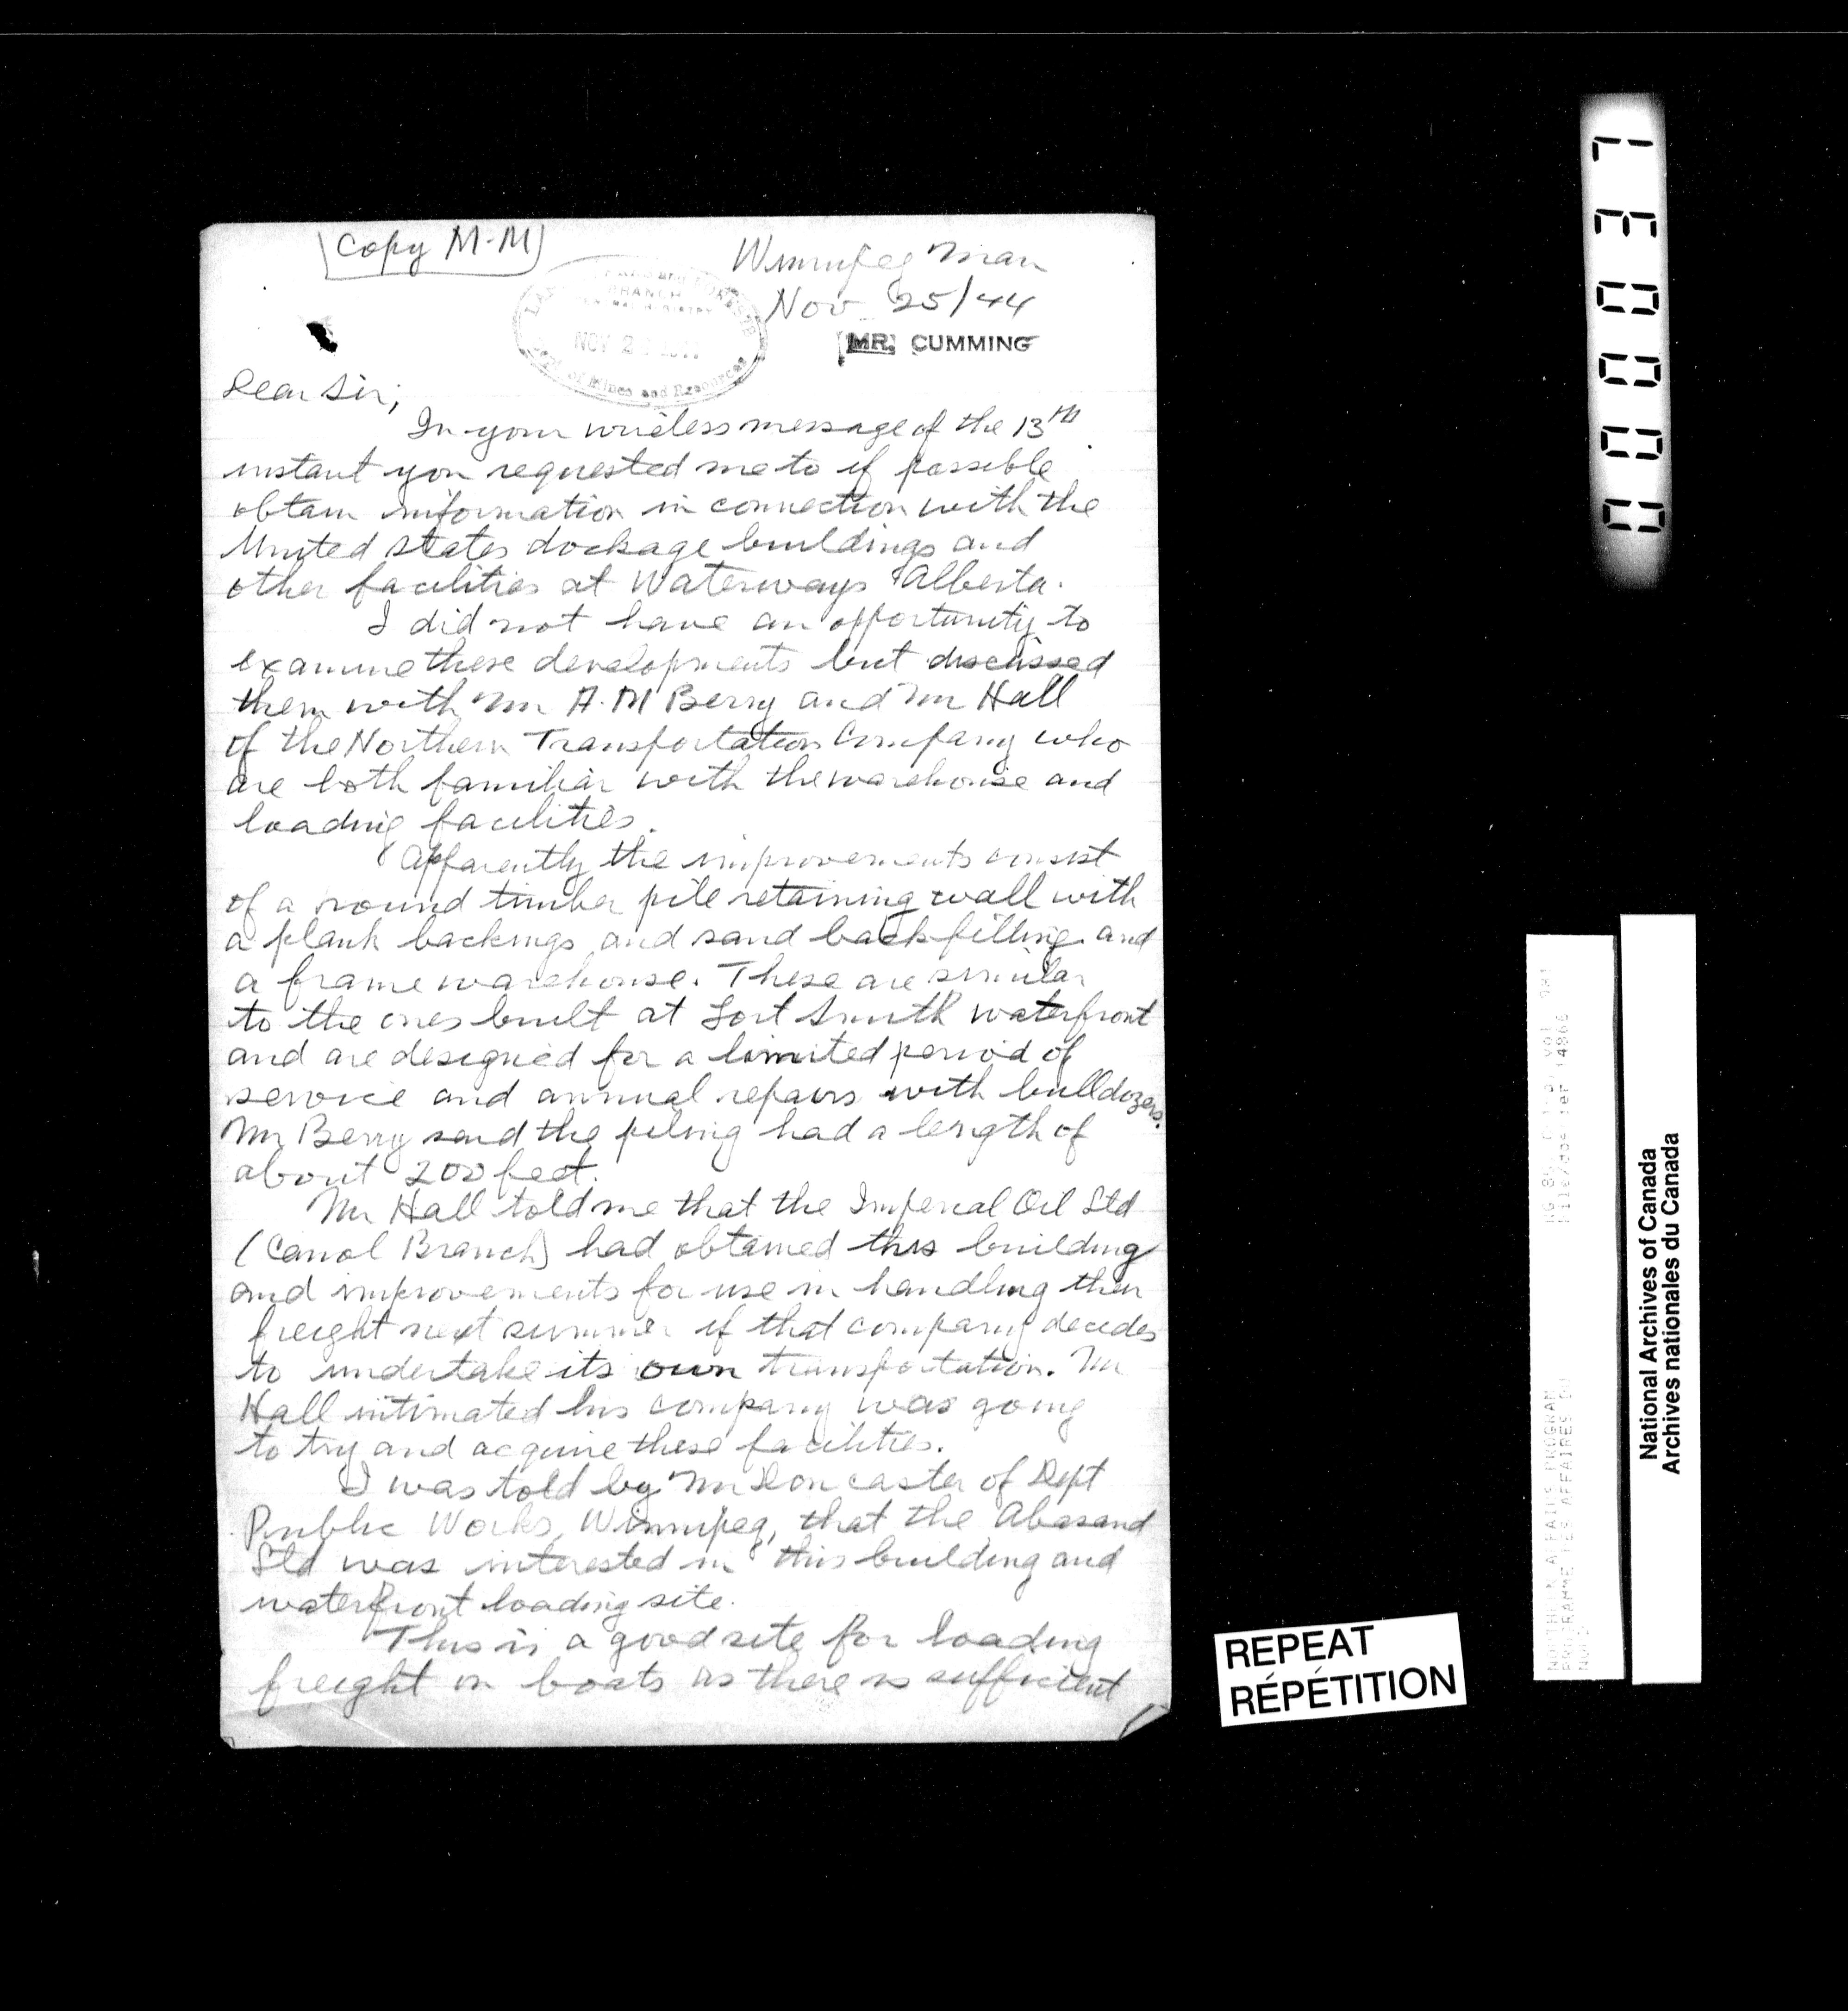 Copy M-M
Winnipeg Man
Nov 25/44
MR. CUMMING
BRANCH
NOV 2
of Mines and Resources
Dear Sir;
In your wireless message of the 13th
instant you requested me to if possible
obtain information in connection with the
United States dockage buildings and
other facilities at Waterways Alberta.
I did not have an opportunity to
examine these developments but discussed
them with Mr A.M Berry and Mr Hall
of the Northern Transportation Company who
are both familiar with the warehouse and
loading facilities.
Apparently the improvements consist
of a round timber pile retaining wall with
a plank backings and sand backfilling and
a frame warehouse. These are similar
to the ones built at Fort Smith waterfront
and are designed for a limited period of
service and annual repairs with bulldozers.
Mr Berry said the piling had a length of
about 200 feet.
Mr Hall told me that the Imperial Oil Ltd
(Canol Branch) had obtained this building
and improvements for use in handling their
freight next summer if that company decides
to undertake its own transportation. Mr
Hall intimated his company was going
to try and acquire these facilities.
I was told by Mr Doncaster of Dept
Public Works, Winnipeg, that the Abasand
Ltd was interested in this building and
waterfront loading site.
This is a good site for loading
freight on boats as there is sufficient
REPEAT
RÉPÉTITION
National Archives of Canada
Archives nationales du Canada